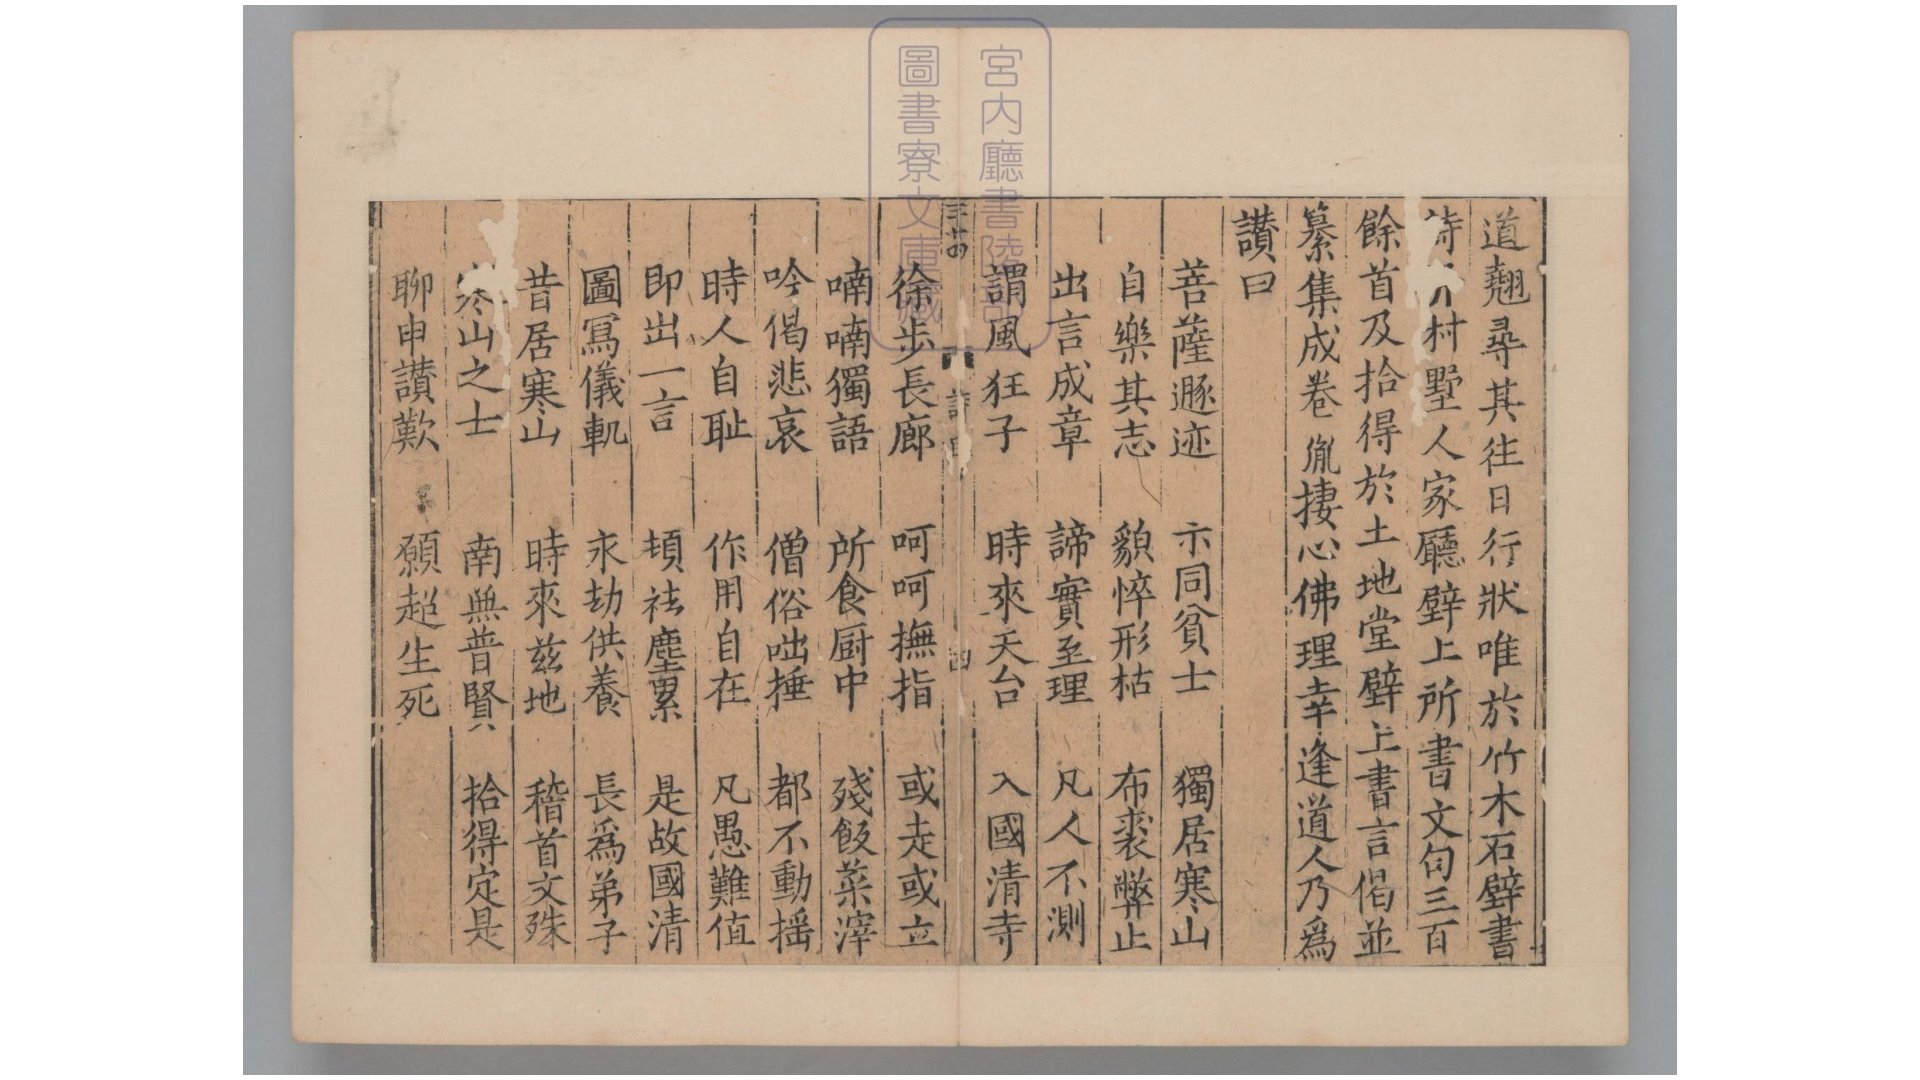 道翹尋其往日行狀唯於竹木石壁書
詩并村墅人家廳壁上所書文句三百
餘首及拾得於土地堂壁上書言偈並
纂集成卷胤棲心佛理幸逢道人乃爲
讃曰
菩薩遯迹 示同貧士 獨居寒山
自樂其志 貌悴形枯 布裘弊止
出言成章 諦實至理 凡人不測
謂風狂子 時來天台 入國清寺
徐步長廊 呵呵撫指 或走或立
喃喃獨語 所食厨中 殘飯菜滓
吟偈悲哀 僧俗咄捶 都不動揺
時人自耻 作用自在 凡愚難值
即出一言 頓袪塵累 是故國清
圖冩儀軌 永劫供養 長爲弟子
昔居寒山 時來兹地 稽首文殊
寒山之士 南無普賢 拾得定是
聊申讃歎 願超生死
四
宮内廳書陵部
圖書寮文庫藏